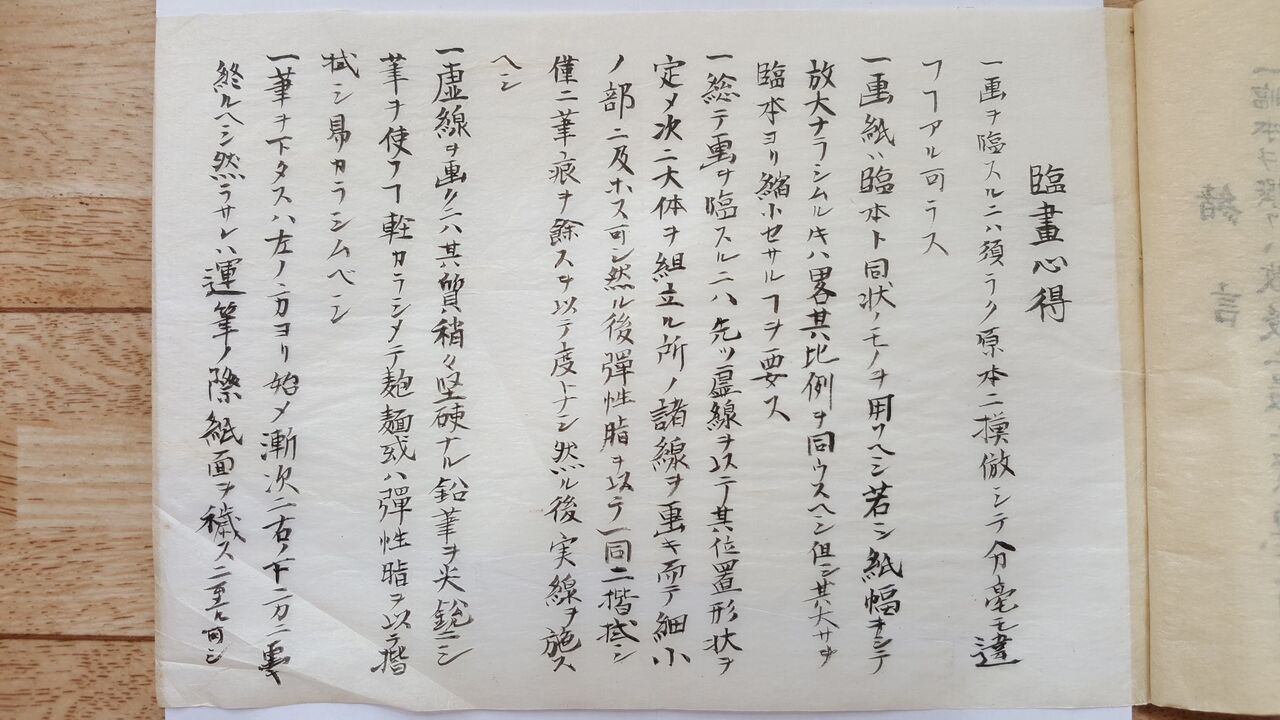 臨畫心得
一画ヲ臨スルニハ須ラク原本ニ摸倣シテ分毫モ違
フヿアル可ラス
一画紙ハ臨本ト同状ノモノヲ用ウヘシ若シ紙幅ヲシテ
放大ナラシムルキハ畧其比例ヲ同ウスヘシ但シ其大サヲ
臨本ヨリ縮小セサルヿヲ要ス
一総テ画ヲ臨スルニハ先ツ虚線ヲ以テ其位置形状ヲ
定メ次ニ大体ヲ組立ル所ノ諸線ヲ画キ而テ細小
ノ部ニ及ホス可シ然ル後彈性脂ヲ以テ一同ニ揩拭シ
僅ニ筆痕ヲ餘スヲ以テ度トナシ然ル後実線ヲ施ス
ヘシ
一虚線ヲ画クニハ其質稍々堅硬ナル鉛筆ヲ尖鋭ニシ
筆ヲ使フヿ軽カラシメテ麺或ハ彈性脂ヲ以テ揩
拭シ易カラシムベシ
一筆ヲ下タスハ左ノ方ヨリ始メ漸次ニ右ノ下ニ画
終ルヘシ然ラサレハ運筆ノ際紙面ヲ穢スニ至ル可シ
緒言